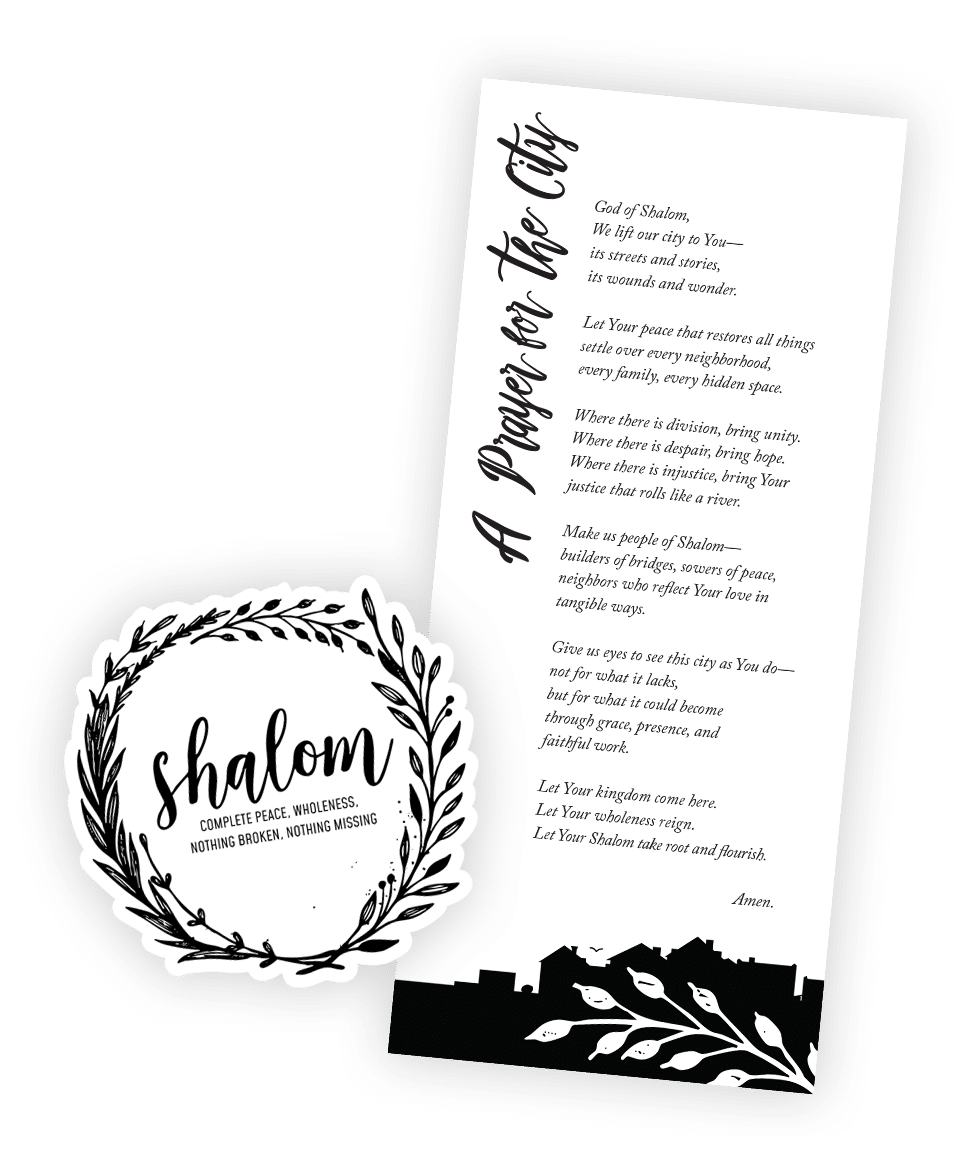 A Prayer for the City
God of Shalom,
We lift our city to You—
its streets and stories,
its wounds and wonder.
Let Your peace that restores all things
settle over every neighborhood,
every family, every hidden space.
Where there is division, bring unity.
Where there is despair, bring hope.
Where there is injustice, bring Your
justice that rolls like a river.
Make us people of Shalom—
builders of bridges, sowers of peace,
neighbors who reflect Your love in
tangible ways.
Give us eyes to see this city as You do—
not for what it lacks,
but for what it could become
through grace, presence, and
faithful work.
Let Your kingdom come here.
Let Your wholeness reign.
Let Your Shalom take root and flourish.
Amen.
shalom
COMPLETE PEACE, WHOLENESS,
NOTHING BROKEN, NOTHING MISSING